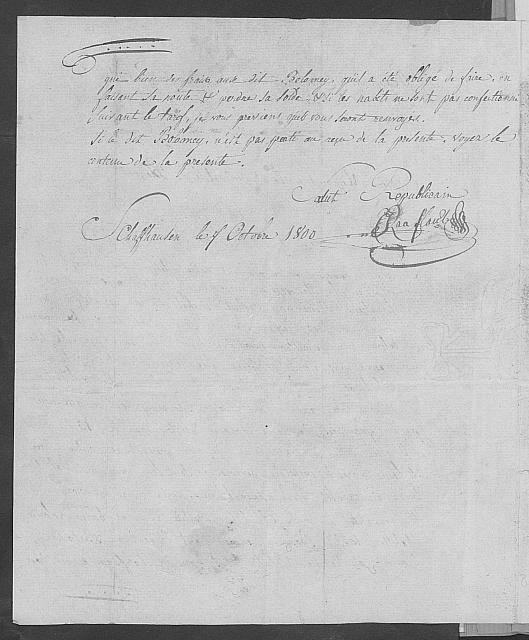 que bien des frais aux dit Belomey, quil a été obligé de faire, en
faisant sa route & perdre sa solde, & si les habits ne sont pas confectionné
suivant le tarif, je vous previens, quils vous seront renvoyés.
Si le dit Belomey, n'est pas parti au reçu de la presente, voyez le
contenu de la presente.
Salut Republicain
Schaffhausen le 7 Octobre 1800